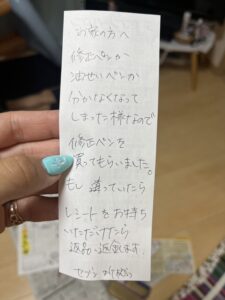 お家の方へ
修正ペンか
油せいペンか
分かなくなって
しまった様なので
修正ペンを
買ってもらいました。
もし 違っていたら
レシートをお持ち
いただけたら
返品、返金します。
セブン